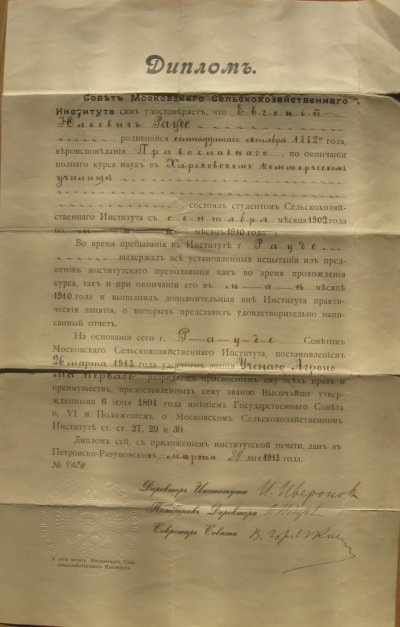 Дипломъ.
Совѣтъ Московскаго Сельскохозяйственнаго
Института симъ удостовѣряетъ, что Евгеній
Юльевичъ Рауде
, родившійся семнадцатаго октября 1882 го года,
вѣроисповѣданія Православнаго, по окончаніи
полнаго курса наукъ въ Харьковскомъ Коммерческомъ
училищѣ
, состоялъ студентомъ Сельскохозяй-
ственнаго Института съ сентября мѣсяца 1902 года
по мѣсяцъ 1910 года.
Во время пребыванія въ Институтѣ г. Рауде
выдержалъ всѣ установленныя испытанія изъ пред-
метовъ институтскаго преподаванія какъ во время прохожденія
курса, такъ и при окончаніи его въ маѣ мѣсяцѣ
1910 года и выполнилъ дополнительныя внѣ Института практи-
ческія занятія, о которыхъ представилъ удовлетворительно напи-
санный отчетъ.
На основаніи сего г. Рауде Совѣтомъ
Московскаго Сельскохозяйственнаго Института, постановленіемъ
26 марта 1913 года удостоенъ званія Ученаго Агроно-
ма Перваго разряда, съ присвоеніемъ ему всѣхъ правъ и
преимуществъ, предоставленныхъ сему званію Высочайше утвер-
жденнымъ 6 іюня 1894 года мнѣніемъ Государственнаго Совѣта
п. VI и Положеніемъ о Московскомъ Сельскохозяйственномъ
Институтѣ ст. ст. 27, 29 и 30.
Дипломъ сей, съ приложеніемъ институтской печати, данъ въ
Петровско-Разумовскомъ, марта 28 дня 1913 года.
№
Директоръ Института И. Иверонов
Помощникъ Директора
Секретарь Совѣта
У сего печать Московскаго Сель-
скохозяйственнаго Института.